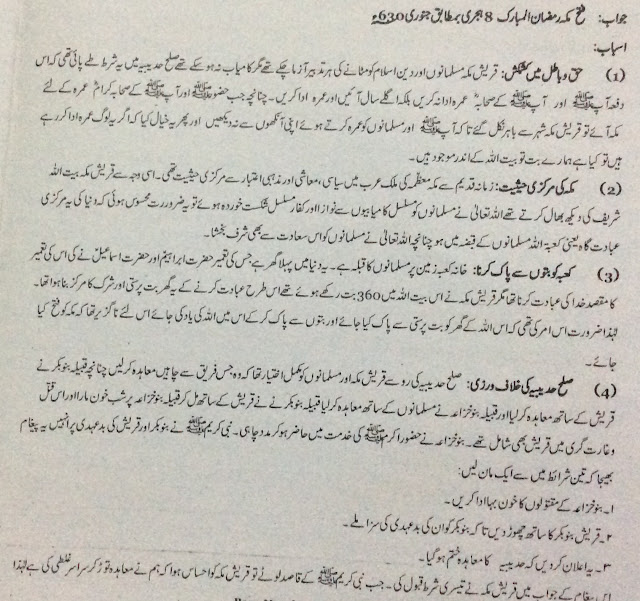 جواب: فتح مکہ رمضان المبارک 8 ہجری بمطابق جنوری 630ء
اسباب:
(1) حق و باطل میں کشمکش: قریش مکہ مسلمانوں اور دین اسلام کو مٹانے کی ہر تدبیر آزما چکے تھے مگر کامیاب نہ ہو سکے تھے صلح حدیبیہ میں یہ شرط طے پائی تھی کہ اس
دفعہ آپ ﷺ اور آپ ﷺ کے صحابہؓ عمرہ ادا نہ کریں بلکہ اگلے سال آئیں اور عمرہ ادا کریں۔ چنانچہ جب حضور ﷺ اور آپ ﷺ کے صحابہ کرامؓ عمرہ کے لئے
مکہ آئے تو قریش مکہ شہر سے باہر نکل گئے تاکہ آپ ﷺ اور مسلمانوں کو عمرہ کرتے ہوئے اپنی آنکھوں سے نہ دیکھیں اور پھر یہ خیال کیا کہ اگر یہ لوگ عمرہ ادا کر رہے
ہیں تو کیا ہے ہمارے بت تو بیت اللہ کے اندر موجود ہیں۔
(2) مکہ کی مرکزی حیثیت: زمانہ قدیم سے مکہ معظمہ کی ملک عرب میں سیاسی، معاشی اور مذہبی اعتبار سے مرکزی حیثیت تھی۔ اسی وجہ سے قریش مکہ بیت اللہ
شریف کی دیکھ بھال کرتے تھے اللہ تعالیٰ نے مسلمانوں کو مسلسل کامیابیوں سے نوازا اور کفار مسلسل شکست خوردہ ہوئے تو یہ ضرورت محسوس ہوئی کہ دنیا کی یہ مرکزی
عبادت گاہ یعنی کعبۃ اللہ مسلمانوں کے قبضہ میں ہو چنانچہ اللہ تعالیٰ نے مسلمانوں کو اس سعادت سے بھی شرف بخشا۔
(3) کعبہ کو بتوں سے پاک کرنا: خانہ کعبہ زمین پر مسلمانوں کا قبلہ ہے۔ یہ دنیا میں پہلا گھر ہے جس کی تعمیر حضرت ابراہیمؑ اور حضرت اسماعیلؑ نے کی اس کی تعمیر
کا مقصد خدا کی عبادت کرنا تھا مگر قریش مکہ نے اس بیت اللہ میں 360 بت رکھے ہوئے تھے اس طرح عبادت کرنے کے یہ گھر بت پرستی اور شرک کا مرکز بنا ہوا تھا۔
لہٰذا ضرورت اس امر کی تھی کہ اس اللہ کے گھر کو بت پرستی سے پاک کیا جائے اور بتوں سے پاک کر کے اس میں اللہ کی یاد کی جائے اس لئے ناگزیر تھا کہ مکہ کو فتح کیا
جائے۔
(4) صلح حدیبیہ کی خلاف ورزی: صلح حدیبیہ کی رو سے قریش مکہ اور مسلمانوں کو مکمل اختیار تھا کہ وہ جس فریق سے چاہیں معاہدہ کر لیں چنانچہ قبیلہ بنو بکر نے
قریش کے ساتھ معاہدہ کر لیا اور قبیلہ بنو خزاعہ نے مسلمانوں کے ساتھ معاہدہ کر لیا قبیلہ بنو بکر نے نے قریش کے ساتھ مل کر قبیلہ بنو خزاعہ پر شب خون مارا اور اس قتل
و غارت گری میں قریش بھی شامل تھے۔ بنو خزاعہ نے حضور اکرم ﷺ کی خدمت میں حاضر ہو کر مدد چاہی۔ نبی کریم ﷺ نے بنو بکر اور قریش کی بد عہدی پر انہیں یہ پیغام
بھیجا کہ تین شرائط میں سے ایک مان لیں:
۱۔ بنو خزاعہ کے مقتولوں کا خون بہا ادا کریں۔
۲۔ قریش بنو بکر کا ساتھ چھوڑ دیں تاکہ بنو بکر کو ان کی بد عہدی کی سزا ملے۔
۳۔ یہ اعلان کر دیں کہ حدیبیہ کا معاہدہ ختم ہو گیا۔
اس پیغام کے جواب میں قریش مکہ نے تیسری شرط قبول کی۔ جب نبی کریم ﷺ کے قاصد لوٹے تو قریش مکہ کو احساس ہوا کہ ہم نے معاہدہ توڑ کر سراسر غلطی کی ہے لہٰذا